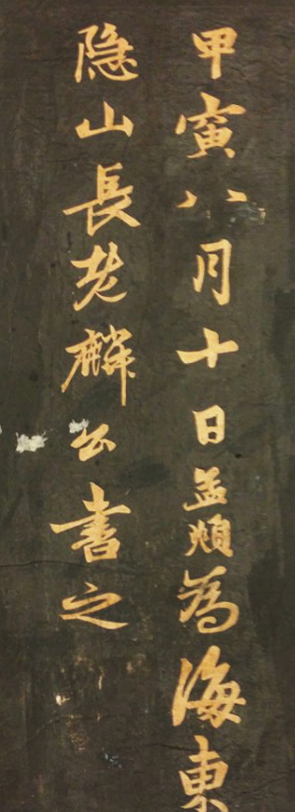 甲寅八月十日孟頫為海東
隐山長老麟公書之